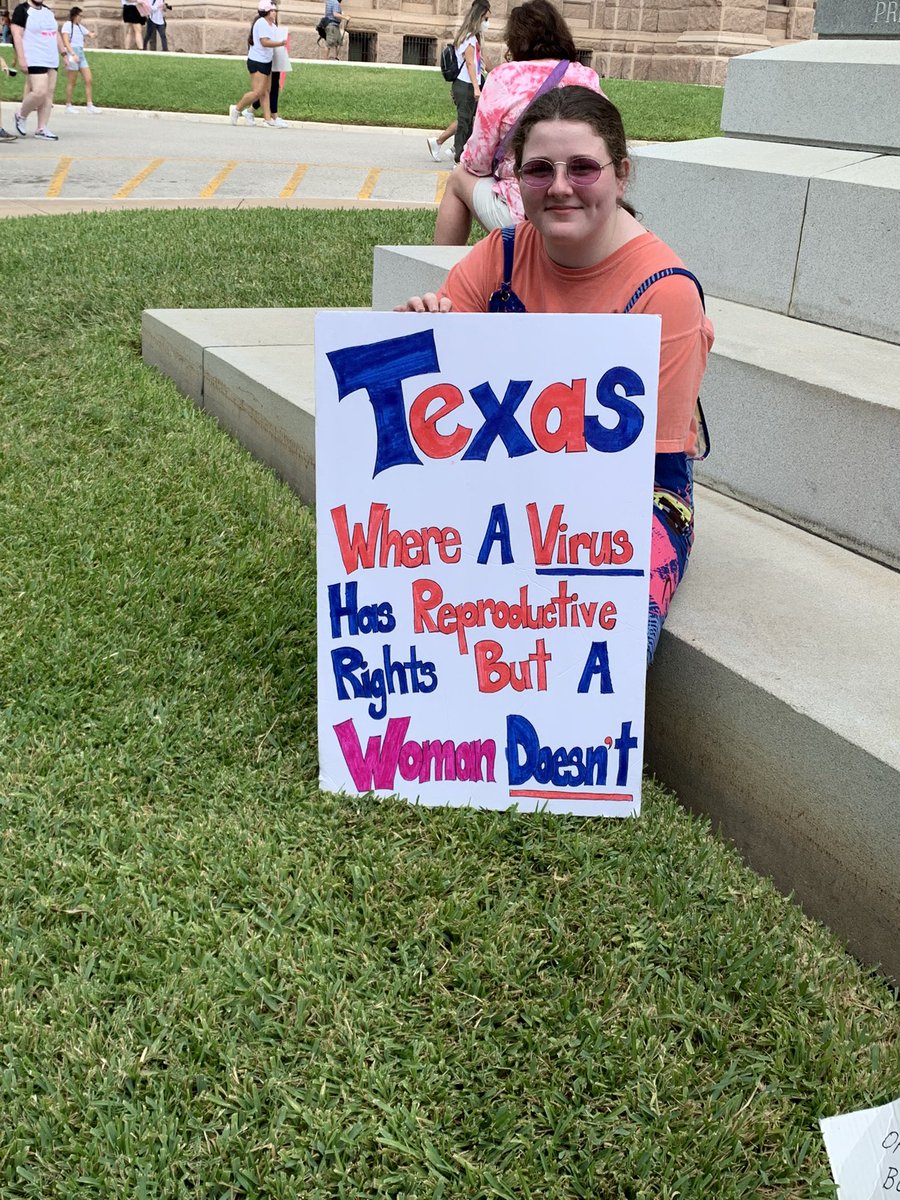 Texas
Where A Virus
Has Reproductive
Rights But A
Woman Doesn't